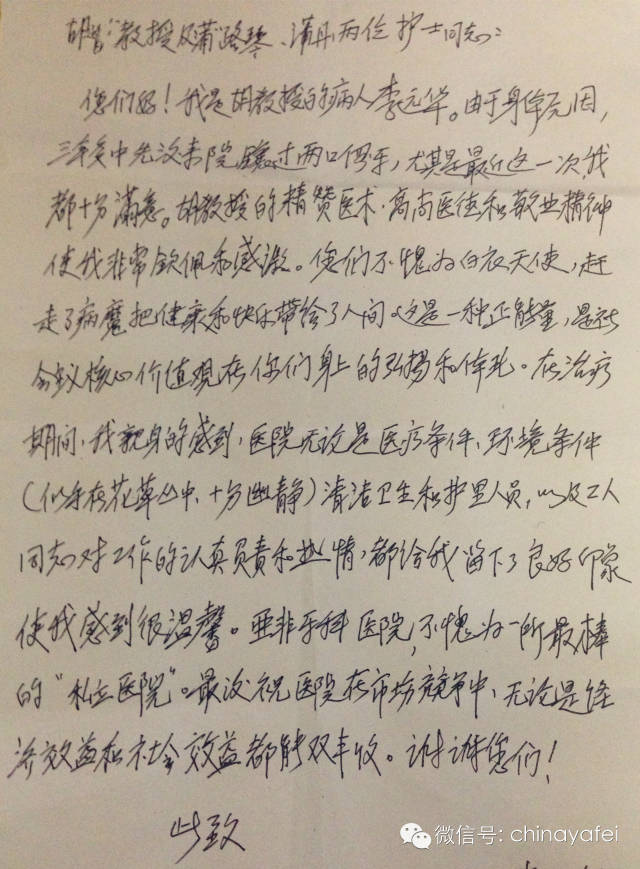 胡 教授及蒲路琴、蒲丹两位护士同志:
您们好!我是胡教授的病人李元华。由于身体元因,
三年多中先次来院 过两口假牙,尤其是最近这一次,我
都十分满意。胡教授的精赞医术、高尚医德和敬业精神
使我非常钦佩和感激。您们不愧为白衣天使,赶
走了病魔把健康和快乐带给了人间。这是一种正能量,是社
会主义核心价值观在你们身上的弘扬和体现。在治疗
期间,我亲身的感到,医院无论是医疗条件、环境条件
(似乎在花草丛中、十分幽静)清洁卫生和护里人员,以及工人
同志对工作的认真负责和热情,都给我留下了良好印象
使我感到很温馨。亚非牙科医院,不愧为一所最棒
的“私立医院”。最后祝医院在市场竞争中,无论是经
济效益和社会效益都能双丰收。谢谢您们!
此致
微信号: chinayafei